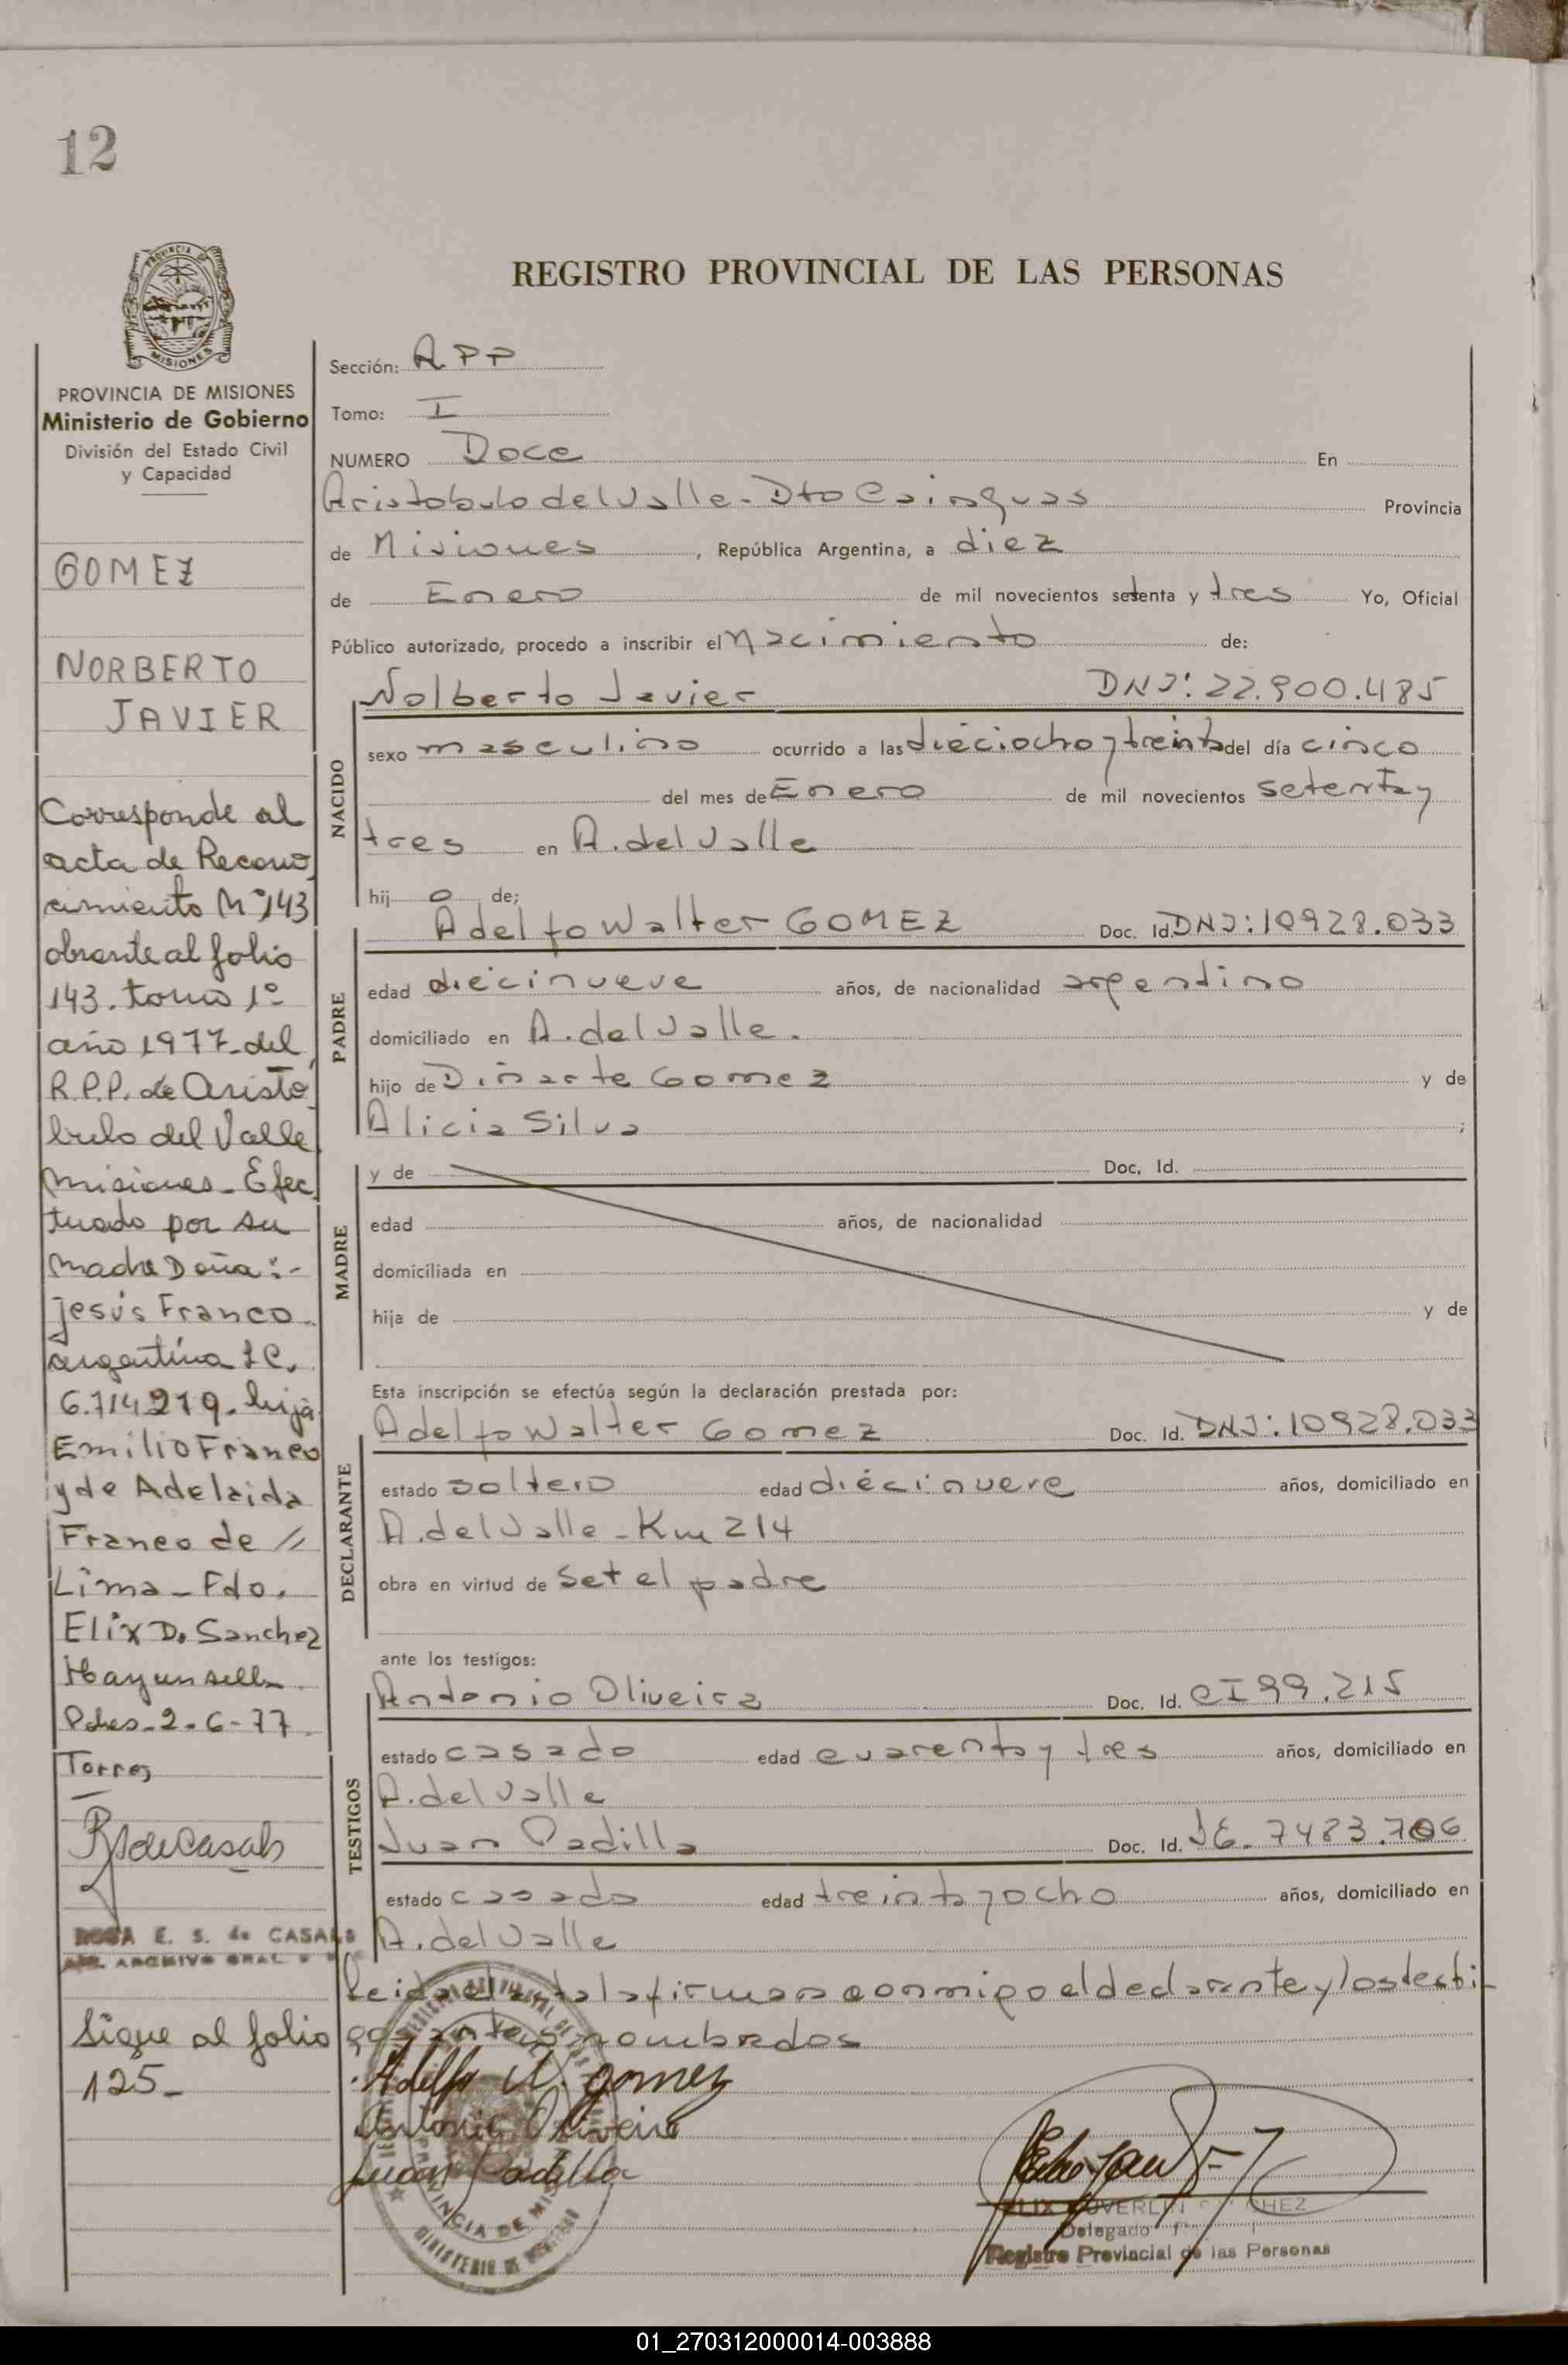 12
REGISTRO PROVINCIAL DE LAS PERSONAS
PROVINCIA DE MISIONES
Ministerio de Gobierno
División del Estado Civil
y Capacidad
GOMEZ
NORBERTO
JAVIER
Corresponde al
acta de Recono
cimiento Nº 143
obrante al folio
143. tomo 1º
año 1977-del
R.P.P. de Aristo
bulo del Valle
Misiones - Efec
tuado por su
Madre Doña:-
Jesús Franco.
argentina LC.
6.714.219. hija
Emilio Franco
y de Adelaida
Franco de //
Lima - Fdo.
Elix D. Sanchez
Hay un sello
Pdas-2-6-77.
Torres
ROSA E. S. de CASALS
Sigue al folio
125-
Sección: A P P
Tomo: I
NUMERO Doce En
Aristobulo del Valle - Dto Cainguas Provincia
de Misiones, República Argentina, a diez
de Enero de mil novecientos setenta y tres Yo, Oficial
Público autorizado, procedo a inscribir el Nacimiento de:
NACIDO
Nolberto Javier DNI: 22.900.485
sexo masculino ocurrido a las dieciocho y treinta del día cinco
del mes de Enero de mil novecientos setenta y
tres en A. del Valle
hij o de;
PADRE
Adelfo Walter GOMEZ Doc. Id. DNI: 10928.033
edad diecinueve años, de nacionalidad argentino
domiciliado en A. del Valle.
hijo de Diñarte Gomez y de
Alicia Silva ;
MADRE
y de Doc. Id.
edad años, de nacionalidad
domiciliada en
hija de y de
Esta inscripción se efectúa según la declaración prestada por:
DECLARANTE
Adelfo Walter Gomez Doc. Id. DNI: 10928.033
estado soltero edad diecinueve años, domiciliado en
A. del Valle - Km 214
obra en virtud de Set el padre
ante los testigos:
TESTIGOS
Antonio Oliveira Doc. Id. CI 99.215
estado casado edad cuarenta y tres años, domiciliado en
A. del Valle
Juan Padilla Doc. Id. LE. 7483.706
estado casado edad treinta y ocho años, domiciliado en
A. del Valle
Leida el acta la firman conmigo el declarante y los testi-
gos antes nombrados
Adelfo W. gomez
Antonio Oliveira
Juan Padilla
Delegado
Registro Provincial de las Personas
01_270312000014-003888